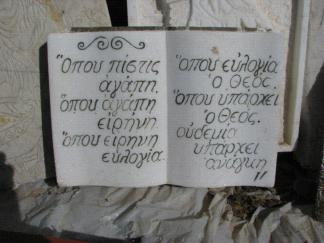 Ὅπου πίστις
ἀγάπη.
ὅπου ἀγάπη
εἰρήνη.
ὅπου εἰρηνη
εὐλογία.
Ὅπου εὐλογία
ὁ Θεός.
Ὅπου ὑπάρχει
ὁ Θεός.
οὐδεμία
υπάρχει
ἀνάγκη